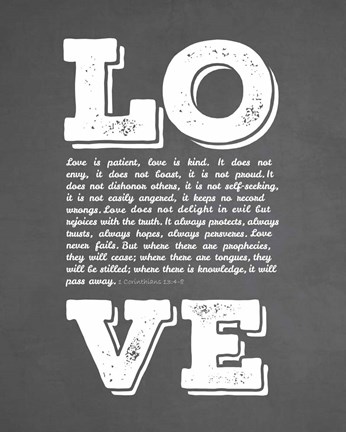 LO
Love is patient, love is kind. It does not
envy, it does not boast, it is not proud. It
does not dishonor others, it is not self-seeking,
it is not easily angered, it keeps no record
wrongs. Love does not delight in evil but
rejoices with the truth. It always protects, always
trusts, always hopes, always perseveres. Love
never fails. But where there are prophecies,
they will cease; where there are tongues, they
will be stilled; where there is knowledge, it will
pass away. 1 Corinthians 13:4-8
VE